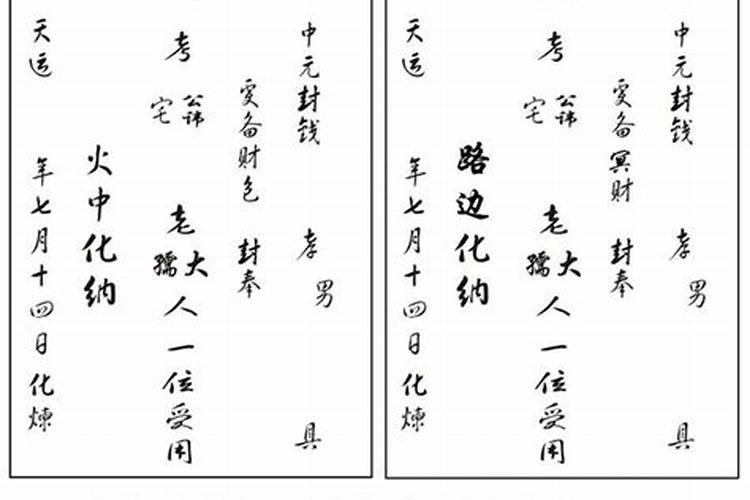 中元封钱 孝男 具
爰备财包 封奉
考 公讳宅 老大孺人一位受用
火中化纳
天运 年七月十四日化炼
中元封钱 孝男 具
爰备冥财 封奉
考 公讳宅 老大孺人一位受用
路边化纳
天运 年七月十四日化炼